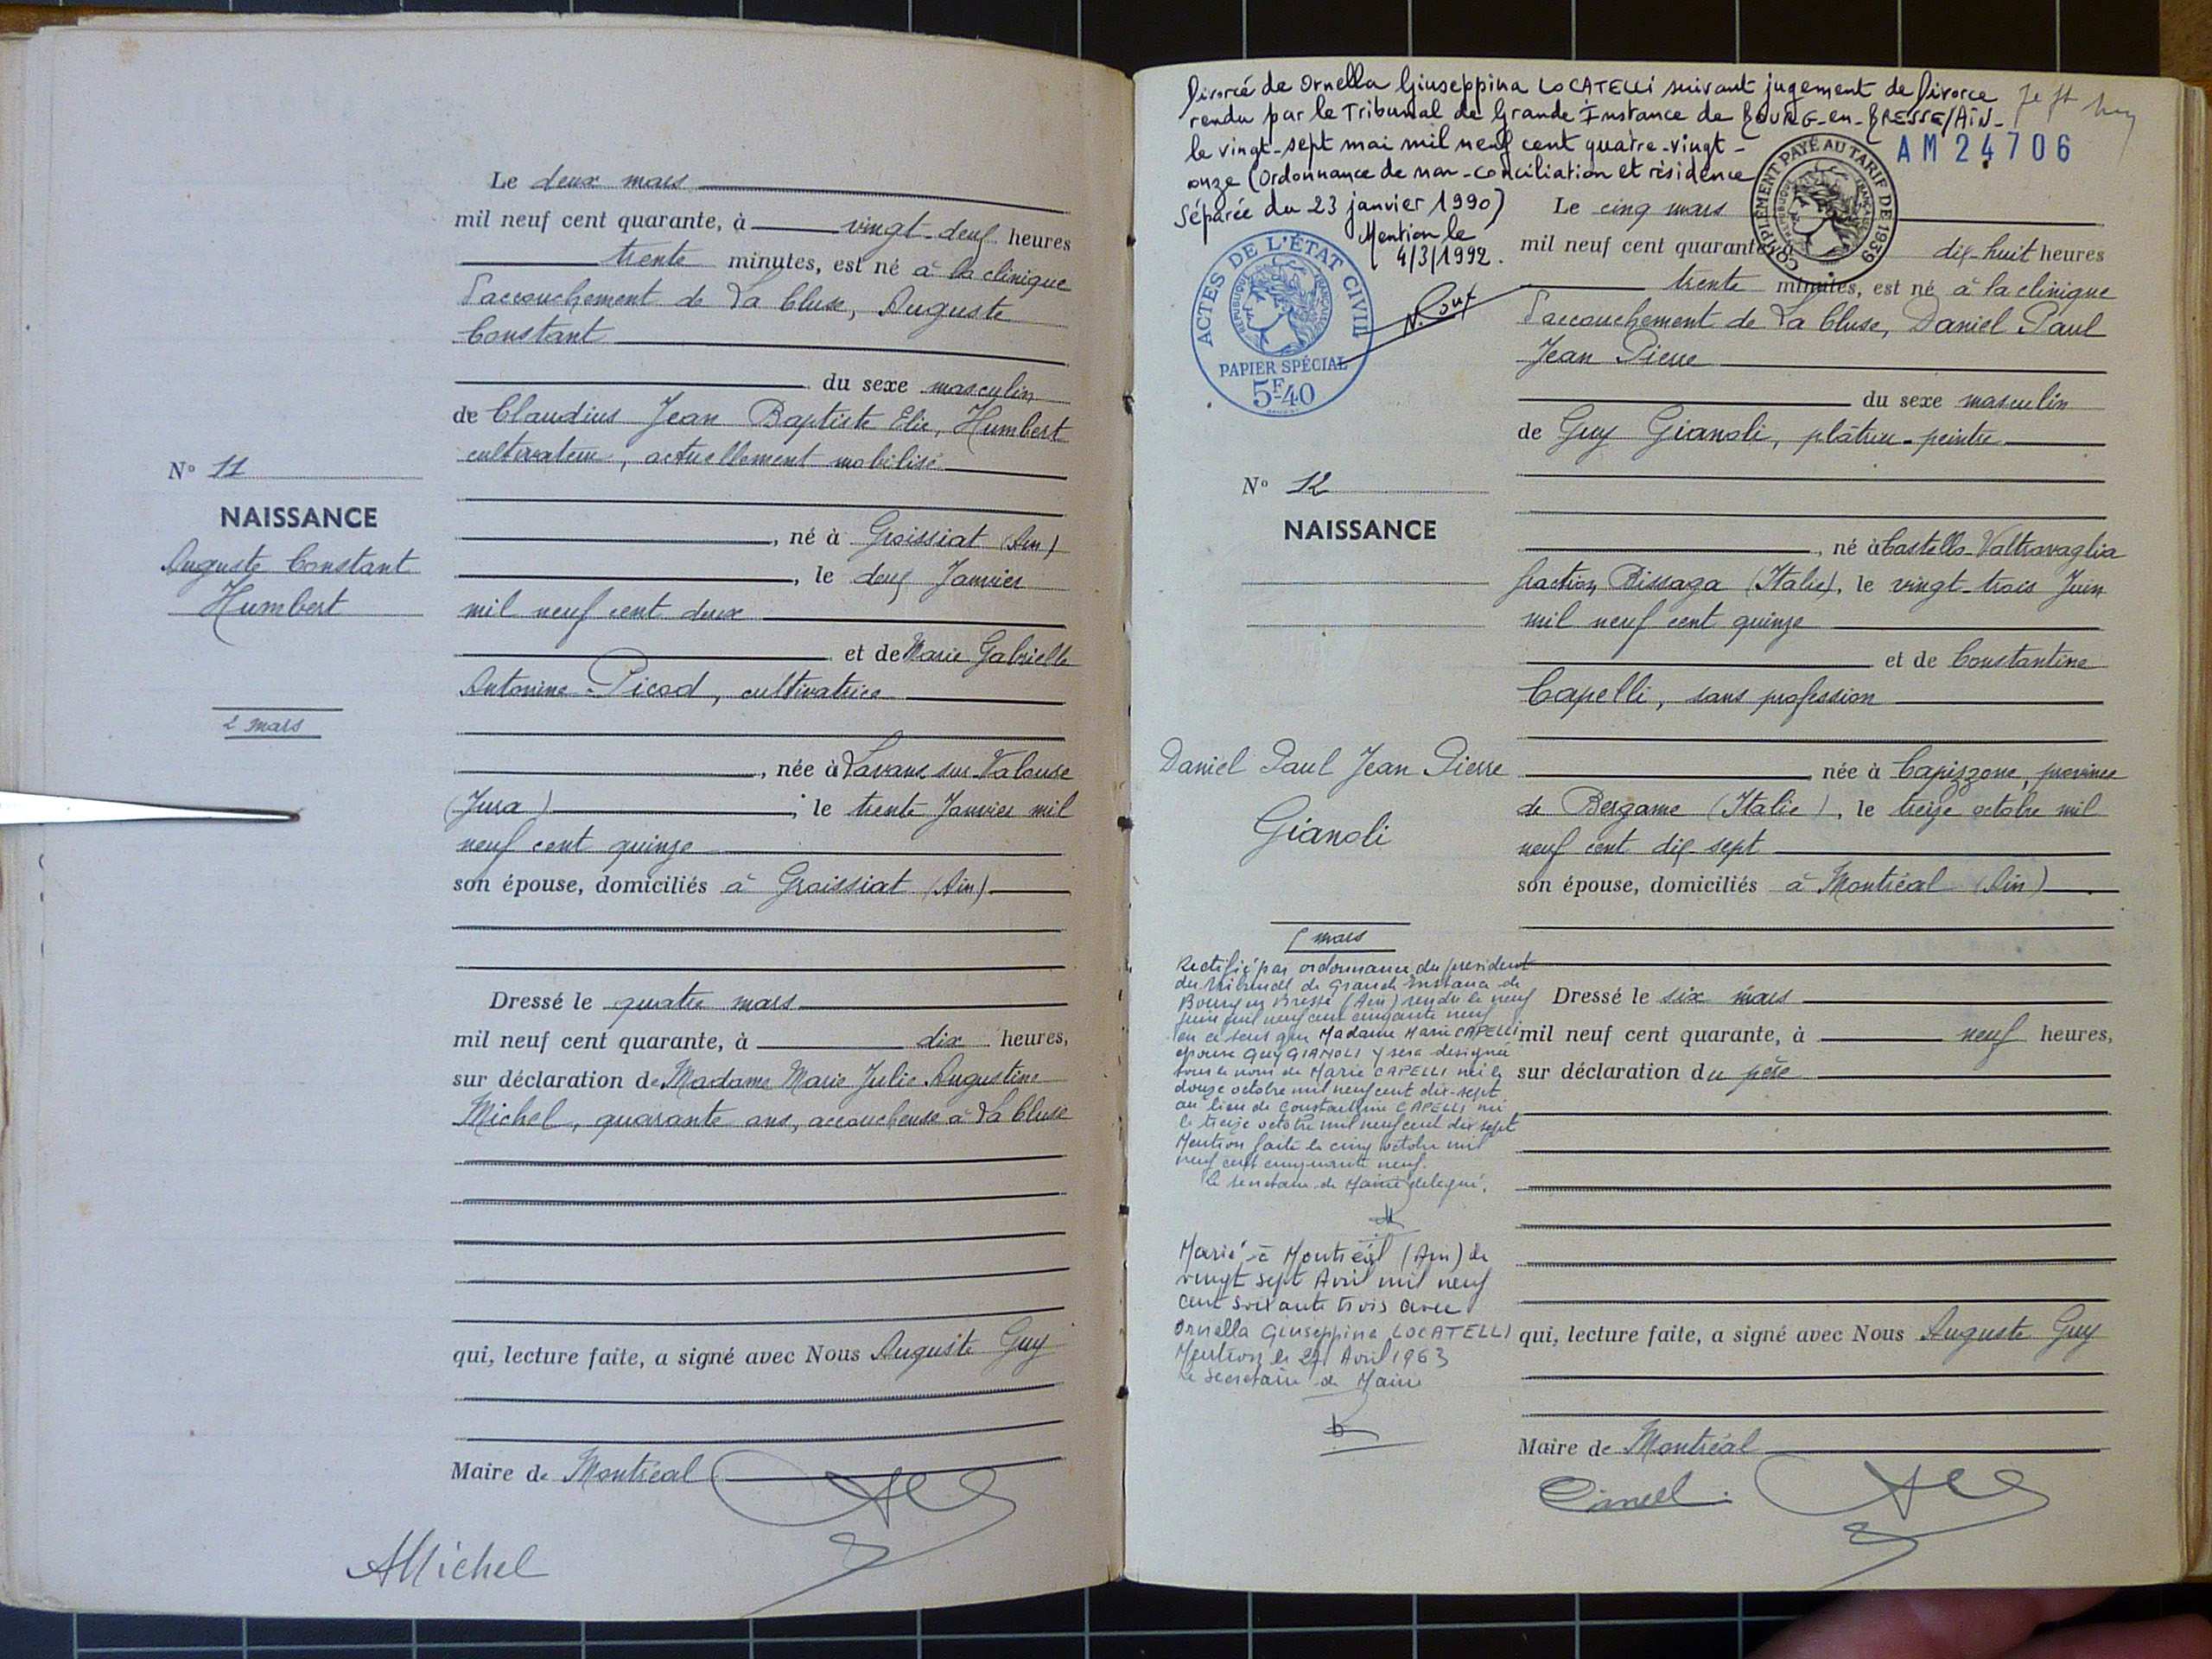 Le deux mars
mil neuf cent quarante, à vingt-deux heures
trente minutes, est né à la clinique
d'accouchement de La Cluse, Auguste
Constant
du sexe masculin
de Claudius Jean Baptiste Elie, Humbert
cultivateur, actuellement mobilisé
N° 11
NAISSANCE
Auguste Constant
Humbert
2 mars
, né à Groissiat (Ain)
, le deux Janvier
mil neuf cent deux
et de Marie Gabrielle
Antonine Picod, cultivatrice
, née à Lavans sur Valouse
(Jura) , le trente Janvier mil
neuf cent quinze
son épouse, domiciliés à Groissiat (Ain)
Dressé le quatre mars
mil neuf cent quarante, à dix heures,
sur déclaration de Madame Marie Julie Augustine
Michel, quarante ans, accoucheuse à La Cluse
qui, lecture faite, a signé avec Nous Auguste Guy
Maire de Montréal
AMichel
Divorcé de Ornella Giuseppina LOCATELLI suivant jugement de Divorce
rendu par le Tribunal de Grande Instance de BOURG-en-BRESSE/AIN-
le vingt-sept mai mil neuf cent quatre-vingt-
onze (Ordonnance de non-conciliation et résidence
Séparée du 23 janvier 1990)
Mention le
4/3/1992.
AM 24706
COMPLÉMENT PAYÉ AU TARIF DE 1939
ACTES DE L'ÉTAT CIVIL
RÉPUBLIQUE FRANÇAISE
PAPIER SPÉCIAL
5F40
Le cinq mars
mil neuf cent quarante dix-huit heures
trente minutes, est né à la clinique
d'accouchement de La Cluse, Daniel Paul
Jean Pierre
du sexe masculin
de Guy Gianoli, plâtrier-peintre
N° 12
NAISSANCE
Daniel Paul Jean Pierre
Gianoli
5 mars
, né à Castello-Valtravaglia
fraction Bissaga (Italie), le vingt-trois Juin
mil neuf cent quinze
et de Constantine
Capelli, sans profession
née à Capizzone, province
de Bergame (Italie), le treize octobre mil
neuf cent dix-sept
son épouse, domiciliés à Montréal (Ain)
Rectifié par ordonnance du president
du tribunal de Grande Instance de
Bourg en Bresse (Ain) rendu le neuf
juin mil neuf cent cinquante neuf
en ce sens que Madame Marie CAPELLI
épouse Guy GIANOLI y sera designée
sous le nom de Marie CAPELLI née le
douze octobre mil neuf cent dix-sept
au lieu de Constantine CAPELLI née
le treize octobre mil neuf cent dix sept
Mention faite le cinq octobre mil
neuf cent cinquante neuf.
le secretaire de Mairie delegué,
Marié à Montréal (Ain) le
vingt sept Avril mil neuf
cent soixante trois avec
Ornella Giuseppina LOCATELLI
Mention le 27 Avril 1963
le secretaire de Mairie
Dressé le six mars
mil neuf cent quarante, à neuf heures,
sur déclaration du père
qui, lecture faite, a signé avec Nous Auguste Guy
Maire de Montréal